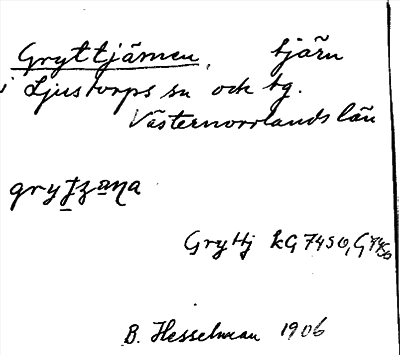 Gryttjärnen, tjärn
i Ljustorps sn och tg.
Västernorrlands län
Grythj kG 7450, G 7450
B. Hesselman 1906